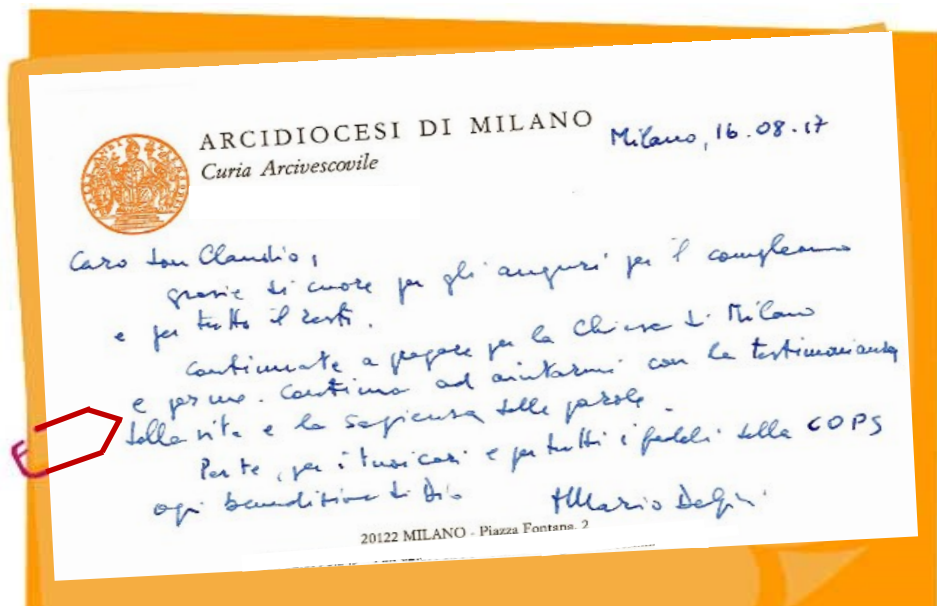 ARCIDIOCESI DI MILANO
Curia Arcivescovile
Milano, 16.08.17
Caro don Claudio,
grazie di cuore per gli auguri per il compleanno
e per tutto il resto.
Continuate a pregare per la Chiesa di Milano
e per me. Continua ad aiutarmi con la testimonianza
della vita e la sapienza delle parole.
Per te, per i tuoi cari e per tutti i fedeli della COPS
ogni benedizione di Dio
+Mario Delpini
20122 MILANO - Piazza Fontana, 2